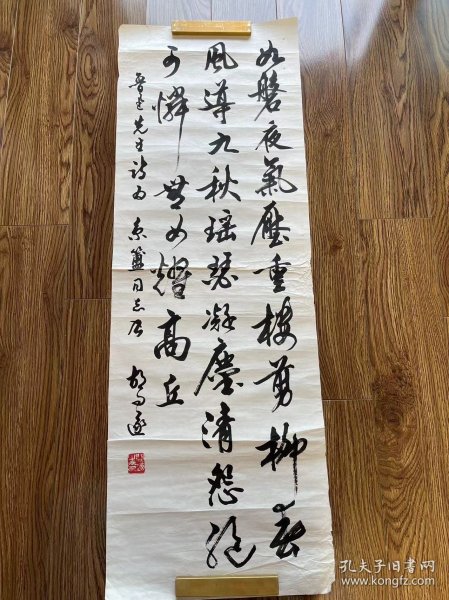 如磐夜氣壓重樓剪柳春
風導九秋瑶瑟凝塵清怨絕
可憐無女耀高丘
魯迅先生诗为同志属
胡问遂
孔夫子旧书网
www.kongfz.com